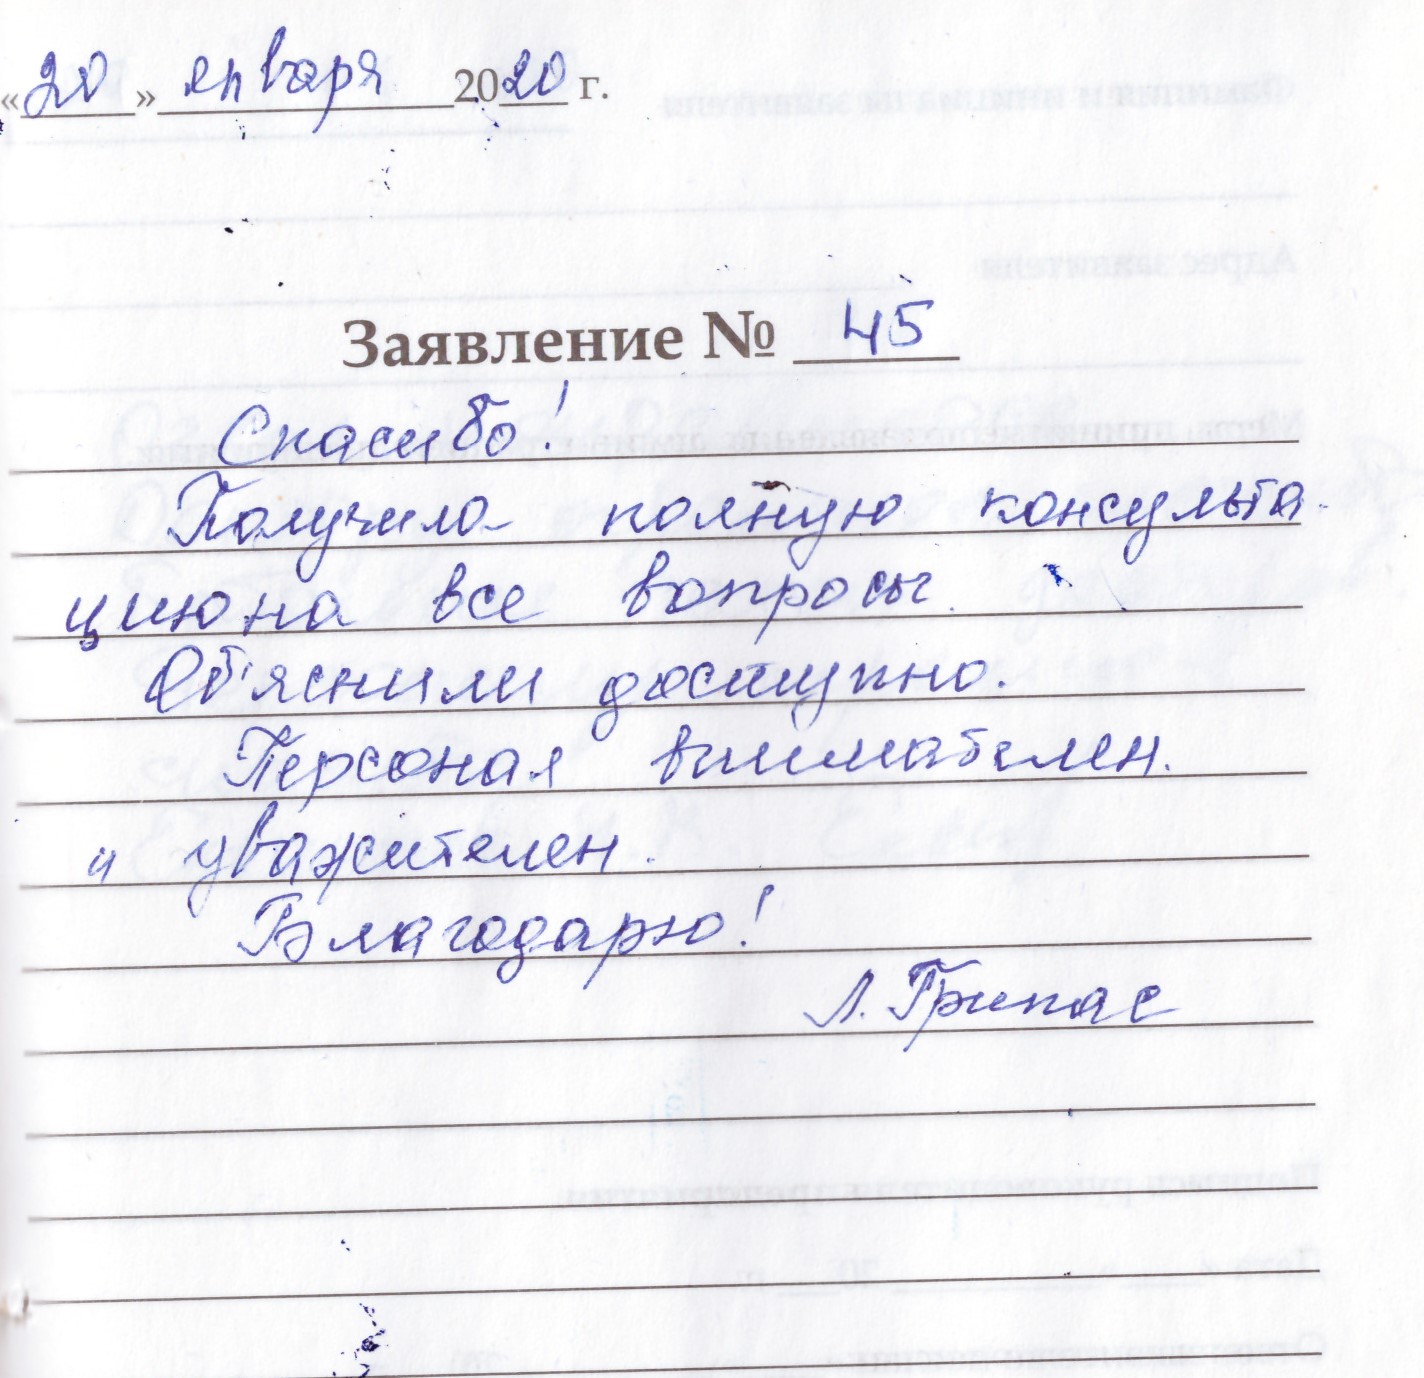 «20» января 2020 г.
Заявление № 45
Спасибо!
Получила полную консульта
цию на все вопросы.
Об'яснили доступно.
Персонал внимателен.
и уважителен.
Благодарю!
Л. Грипас